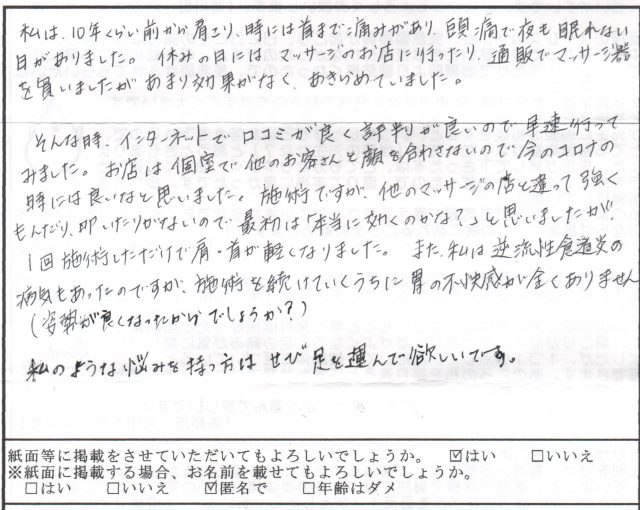 私は、10年くらい前から肩コリ、時には首まで痛みがあり、頭痛で夜も眠れない
日がありました。休みの日には マッサージのお店に行ったり、通販でマッサージ器
を買いましたがあまり効果がなく、あきらめていました。
そんな時、インターネットで 口コミが良く評判が良いので早速行って
みました。お店は個室で他のお客さんと顔を合わさないので今のコロナの
時には良いなと思いました。施術ですが、他のマッサージの店と違って強く
もんだり、叩いたりがないので最初は「本当に効くのかな?」と思いましたが、
1回施術しただけで肩・首が軽くなりました。また、私は逆流性食道炎の
病気もあったのですが、施術を続けていくうちに胃の不快感が全くありません
(姿勢が良くなったからでしょうか?)
私のような悩みを持つ方は ぜひ足を運んで欲しいです。
紙面等に掲載をさせていただいてもよろしいでしょうか。 ☑はい □いいえ
※紙面に掲載する場合、お名前を載せてもよろしいでしょうか。
□はい □いいえ ☑匿名で □年齢はダメ